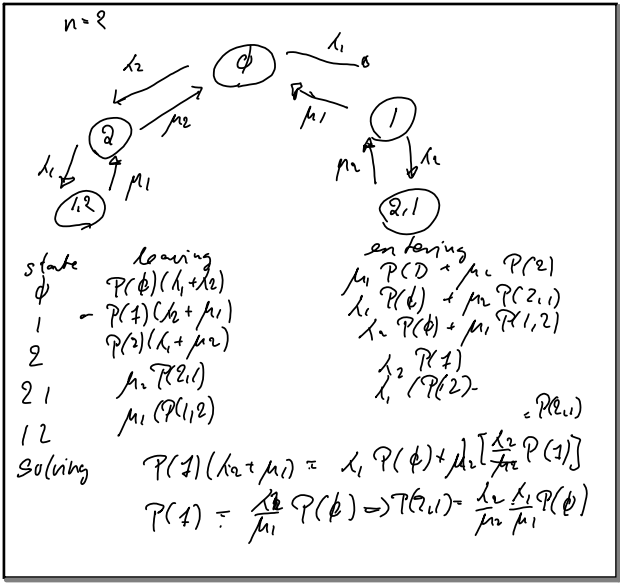 n = 2
λ₂ φ λ₁
2 μ₂ μ₁ 1
λ₁ μ₁ μ₂ λ₂
1,2 2,1
state leaving entering
φ P(φ)(λ₁+λ₂) μ₁ P(1) + μ₂ P(2)
1 - P(1)(λ₂ + μ₁) λ₁ P(φ) + μ₂ P(2,1)
2 P(2)(λ₁ + μ₂) λ₂ P(φ) + μ₁ P(1,2)
21 μ₂ P(2,1) λ₂ P(1)
12 μ₁ (P(1,2) λ₁ (P(2)-
= P(2,1)
Solving P(1)(λ₂ + μ₁) = λ₁ P(φ) + μ₂ [λ₂/μ₂ P(1)]
P(1) = λ₁/μ₁ P(φ) => P(2,1) = λ₂/μ₂ λ₁/μ₁ P(φ)